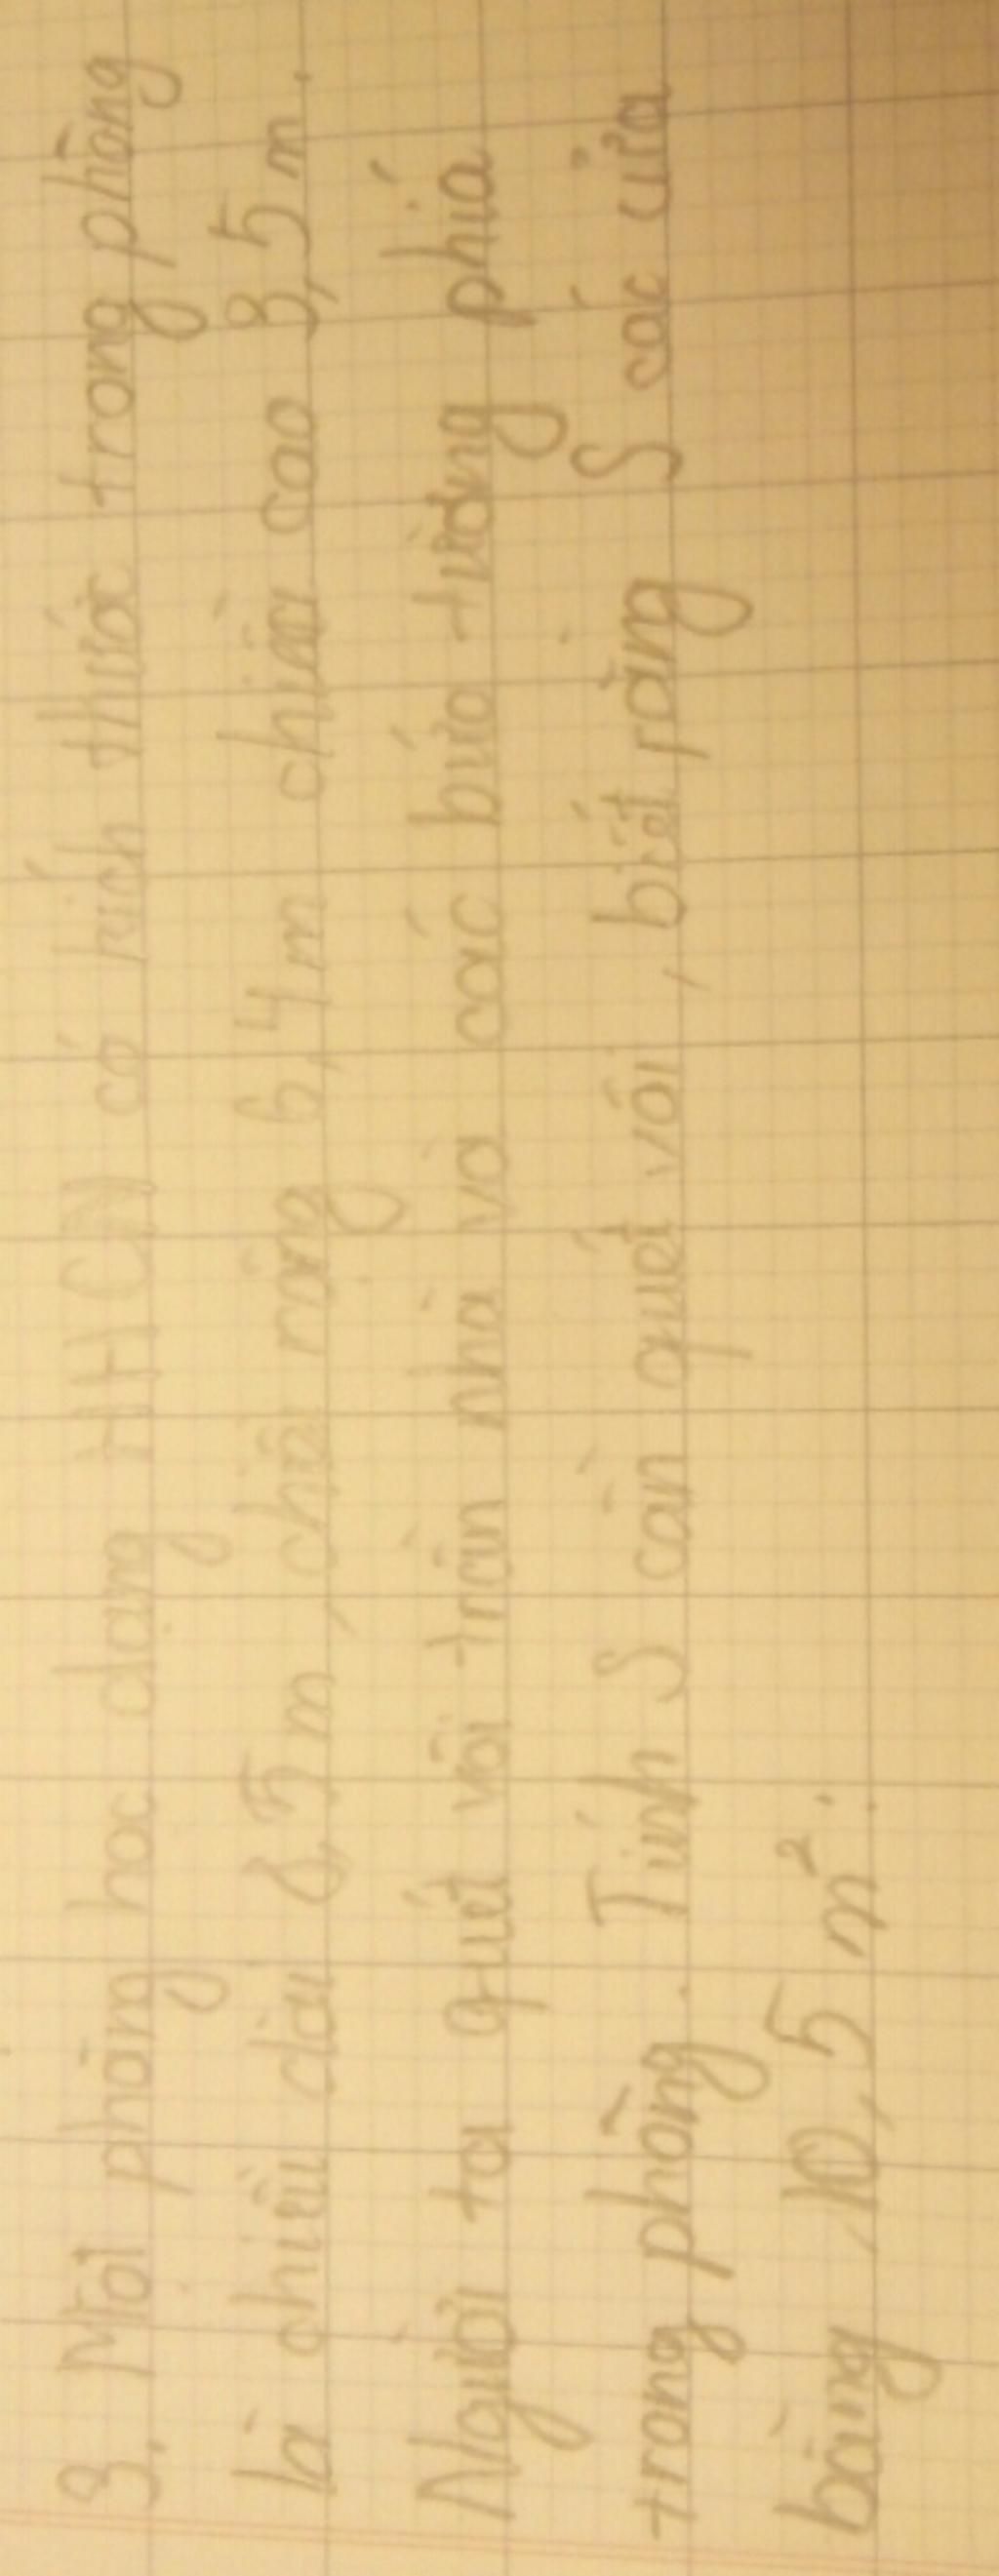 3. Một phòng học dạng HHCN có kích thước trong phòng
là chiều dài 8,5m, chiều rộng 6,4m chiều cao 3,5m.
Người ta quét vôi trần nhà và các bức tường phía
trong phòng. Tính S cần quét vôi, biết rằng S các cửa
bằng 10,5 m².